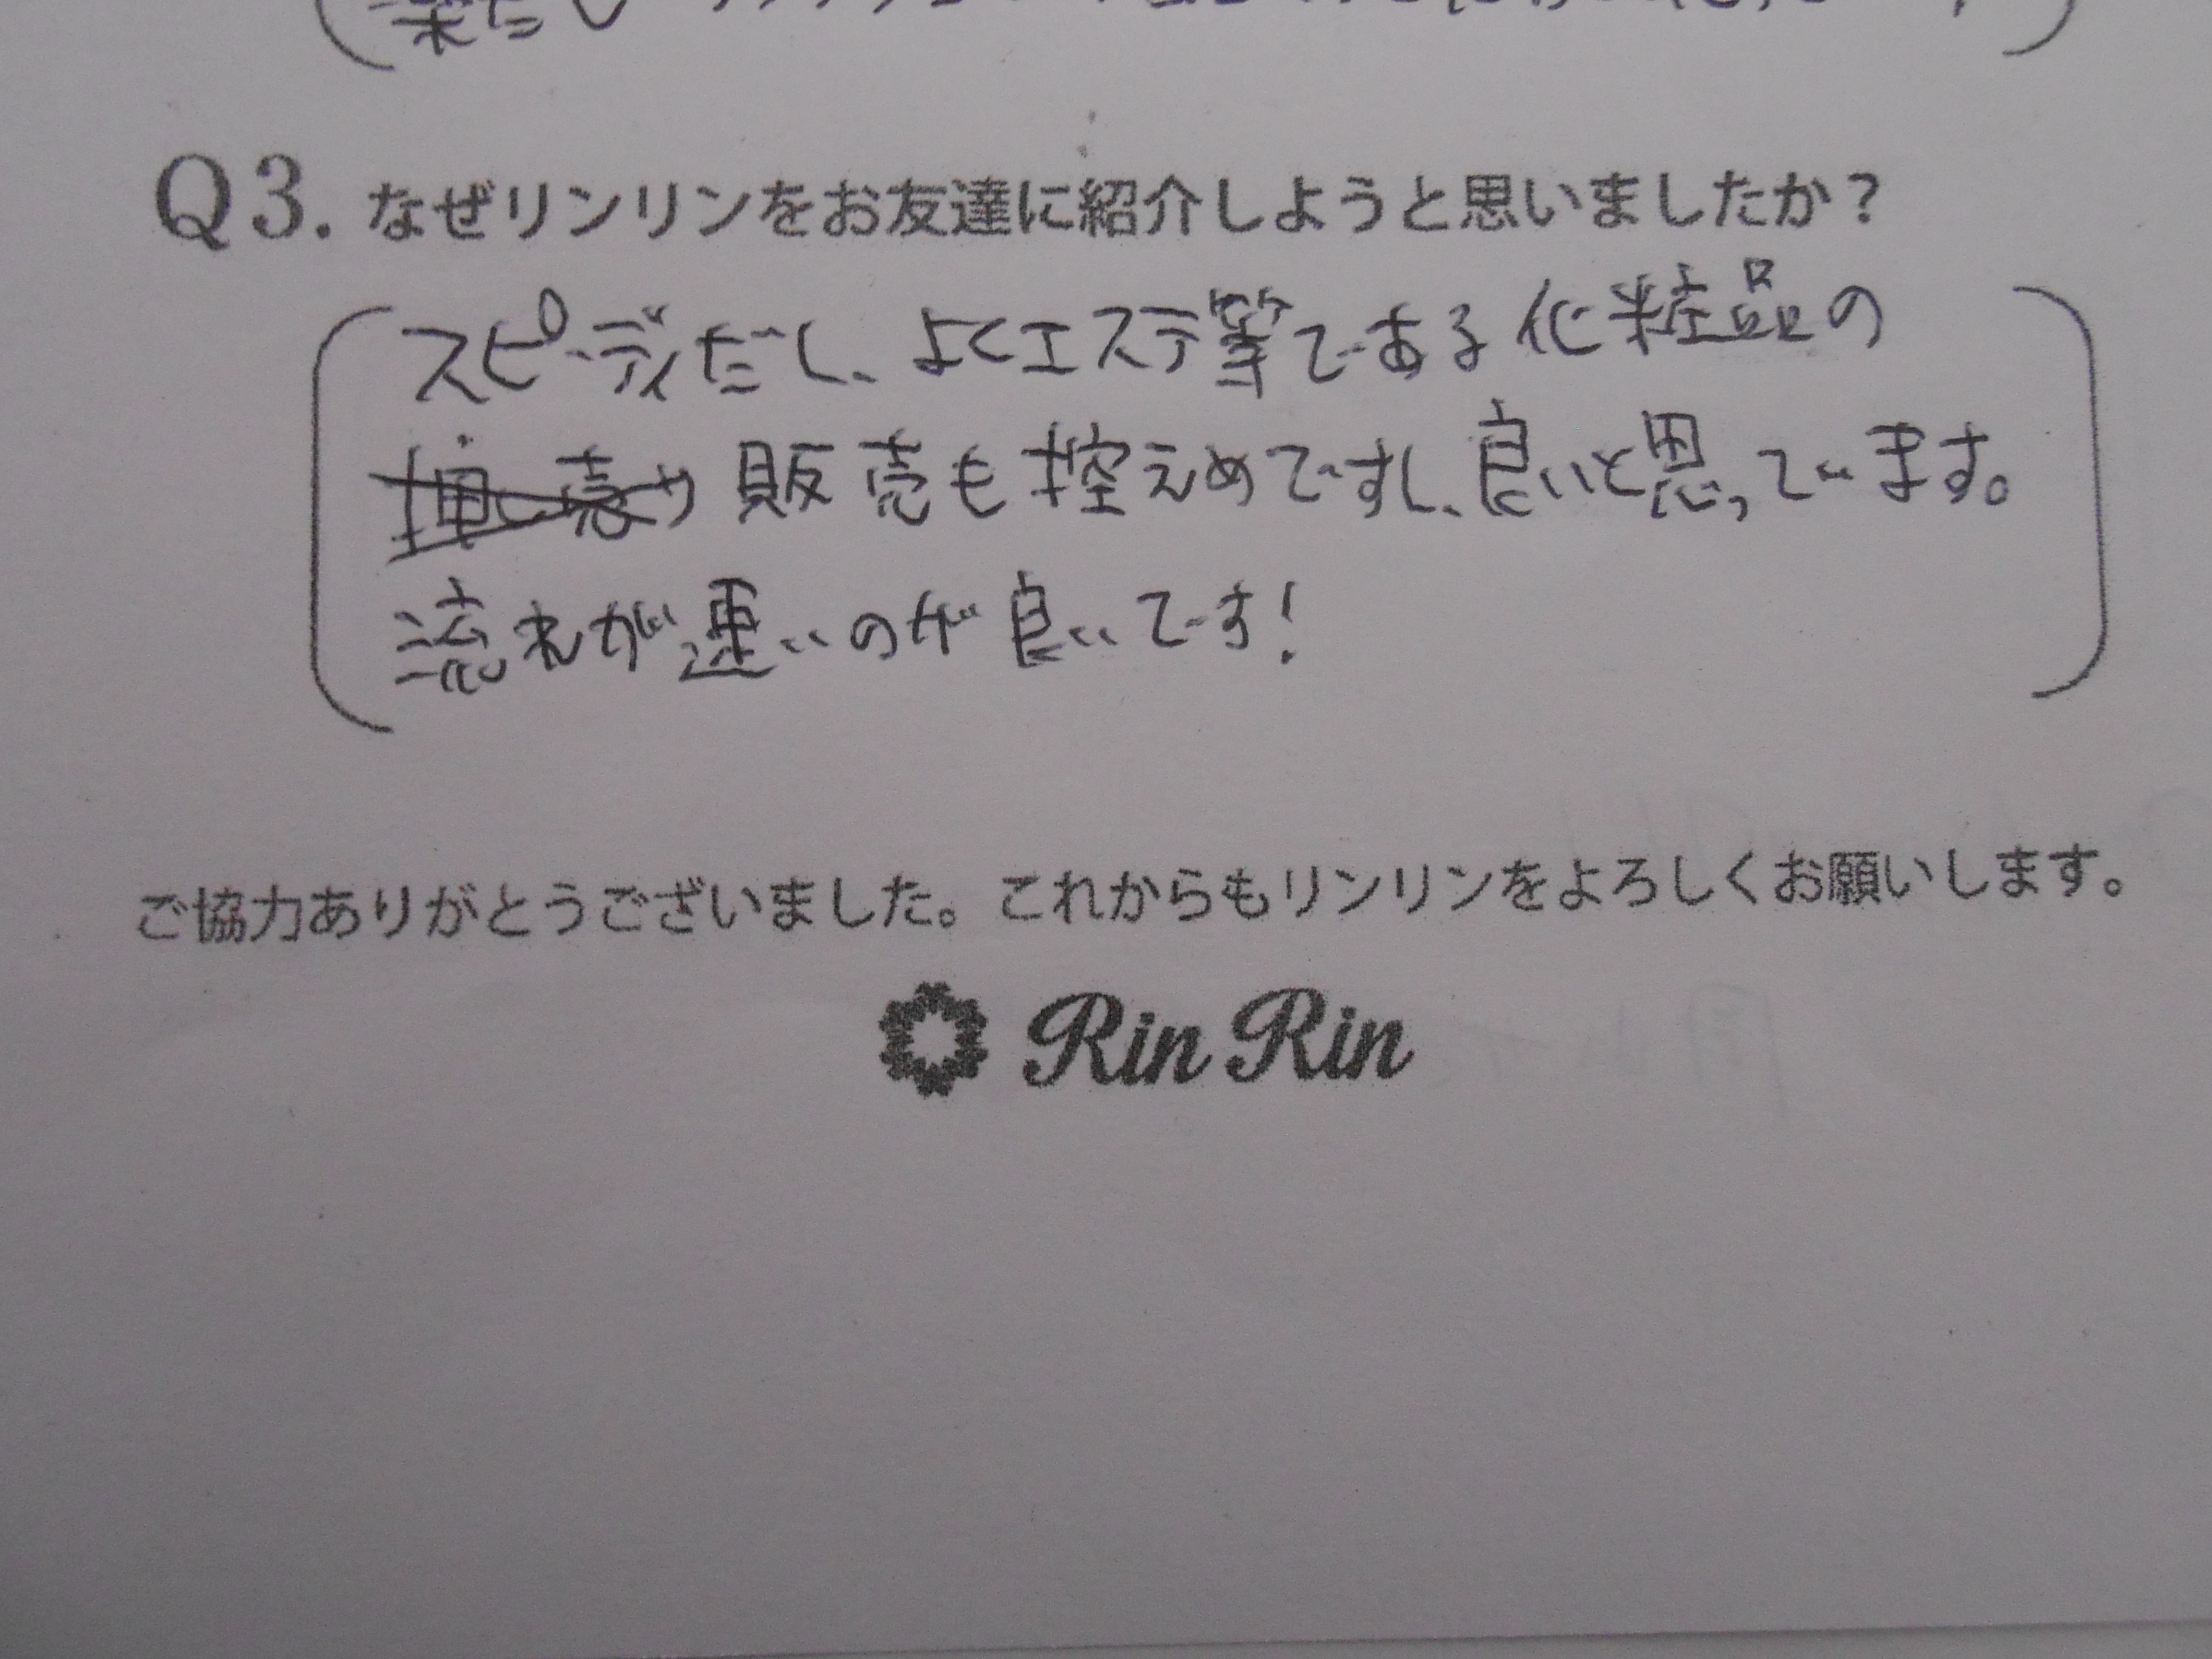 Q3. なぜリンリンをお友達に紹介しようと思いましたか?
スピーディだし、よくエステ等である化粧品の
販売も控えめですし、良いと思っています。
流れが速いのが良いです!
ご協力ありがとうございました。これからもリンリンをよろしくお願いします。
Rin Rin